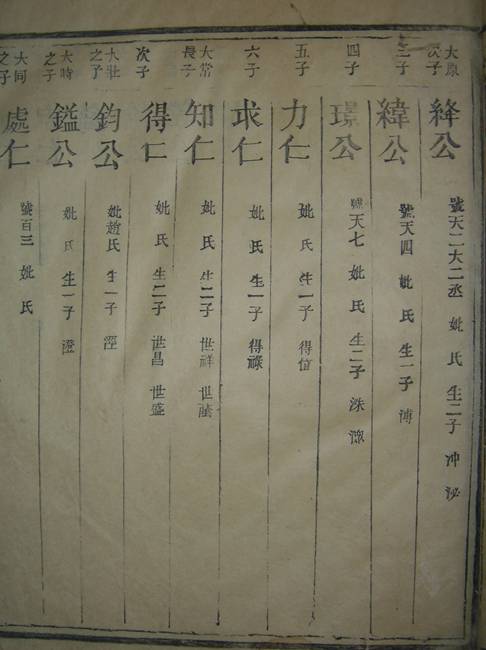 大原次子 絳公 號天二大二丞 妣 氏 生二子 冲 泌
三子 緯公 號天四 妣 氏 生一子 溥
四子 璟公 號天七 妣 氏 生二子 洙 淑
五子 力仁 妣 氏 生一子 得信
六子 求仁 妣 氏 生一子 得祿
大常長子 知仁 妣 氏 生二子 世祥 世蔭
次子 得仁 妣 氏 生二子 世昌 世盛
大壯之子 鈞公 妣趙氏 生一子 涇
大時之子 鎰公 妣 氏 生一子 澄
大同之子 處仁 號百三 妣 氏